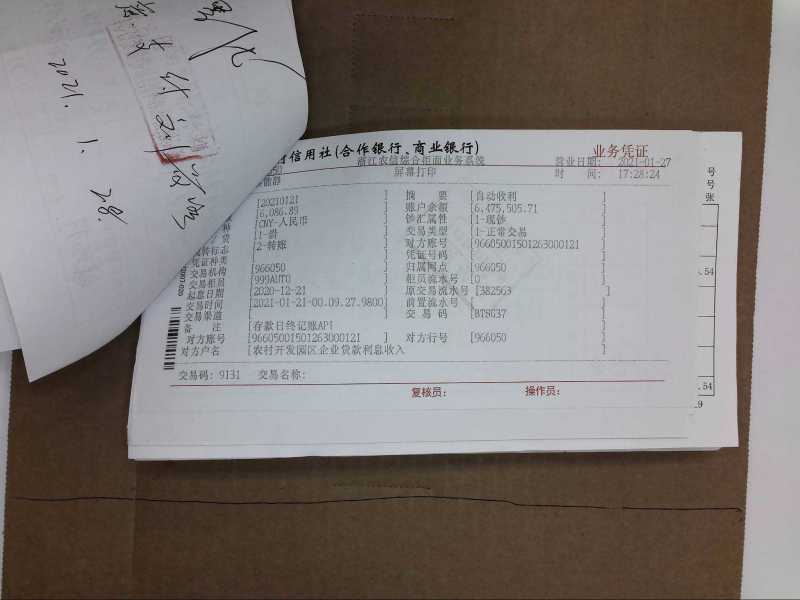 2021. 1. 28.
信用社(合作银行、商业银行)
业务凭证
浙江农信综合柜面业务系统
营业日期: 2021-01-27
屏幕打印
时 间: 17:28:24
[20210121 ] 摘 要 [自动收利 ]
[6,086.89 ] 账户余额 [6,475,505.71 ]
[CNY-人民币 ] 钞汇属性 [1-现钞 ]
[1-借 ] 交易类型 [1-正常交易 ]
[2-转账 ] 对方账号 [96605001501263000121 ]
凭证种类 [ ] 凭证号码 [ ]
交易机构 [966050 ] 归属网点 [966050 ]
交易柜员 [999AUTO ] 柜员流水号 [0 ]
起息日期 [2020-12-21 ] 原交易流水号 [382563 ]
交易时间 [2021-01-21-00.09.27.9800] 前置流水号 [ ]
交易渠道 [ ] 交 易 码 [BTSG37 ]
备 注 [存款日终记账API ]
对方账号 [96605001501263000121 ] 对方行号 [966050 ]
对方户名 [农村开发园区企业贷款利息收入 ]
交易码: 9131 交易名称:
复核员: 操作员:
号
号
张
.54
.54
.9